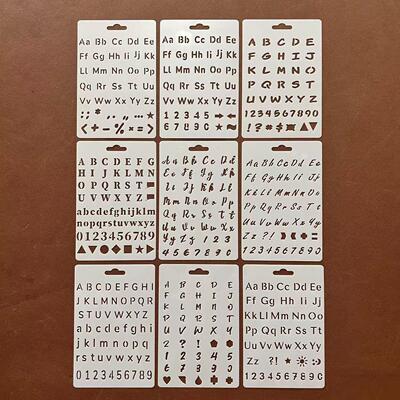 Aa Bb Cc Dd Ee
Ff Gg Hh Ii Jj Kk
Ll Mm Nn Oo Pp
Qq Rr Ss Tt Uu
Vv Ww Xx Yy Zz
Aa Bb Cc Dd Ee
Ff Gg Hh Ii Jj Kk
Ll Mm Nn Oo Pp
Qq Rr Ss Tt Uu
Vv Ww Xx Yy Zz
1 2 3 4 5
6 7 8 9 0
A B C D E
F G H I J
K L M N O
P Q R S T
U V W X Y Z
1234567890
A B C D E F G
H I J K L M N
O P Q R S T
U V W X Y Z
abcdefghijklm
nopqrstuvwxyz
0123456789
Aa Bb Cc Dd
Ee Ff Gg Hh
Ii Jj Kk Ll
Mm Nn Oo
Pp Qq Rr Ss
Tt Uu Vv
Ww Xx
Yy Zz 1 2 3
4 5 6 7 8 9 0
Aa Bb Cc Dd Ee
Ff Gg Hh Ii Jj
Kk Ll Mm Nn Oo
Pp Qq Rr Ss Tt
Uu Vv Ww Xx Yy
Zz ?!
1234567890
A B C D E F G H I
J K L M N O P Q R
S T U V W X Y Z
a b c d e f g h i
j k l m n o p q r
s t u v w x y z
0 1 2 3 4 5 6 7 8 9
A B C D E
F G H I J
K L M N O
P Q R S T
U V W X Y
Z ? !
1 2 3 4 5
6 7 8 9 0
Aa Bb Cc Dd Ee
Ff Gg Hh Ii Jj Kk
Ll Mm Nn Oo Pp
Qq Rr Ss Tt Uu
Vv Ww Xx Yy
Zz ?!
1 2 3 4 5 6 7 8 9 0